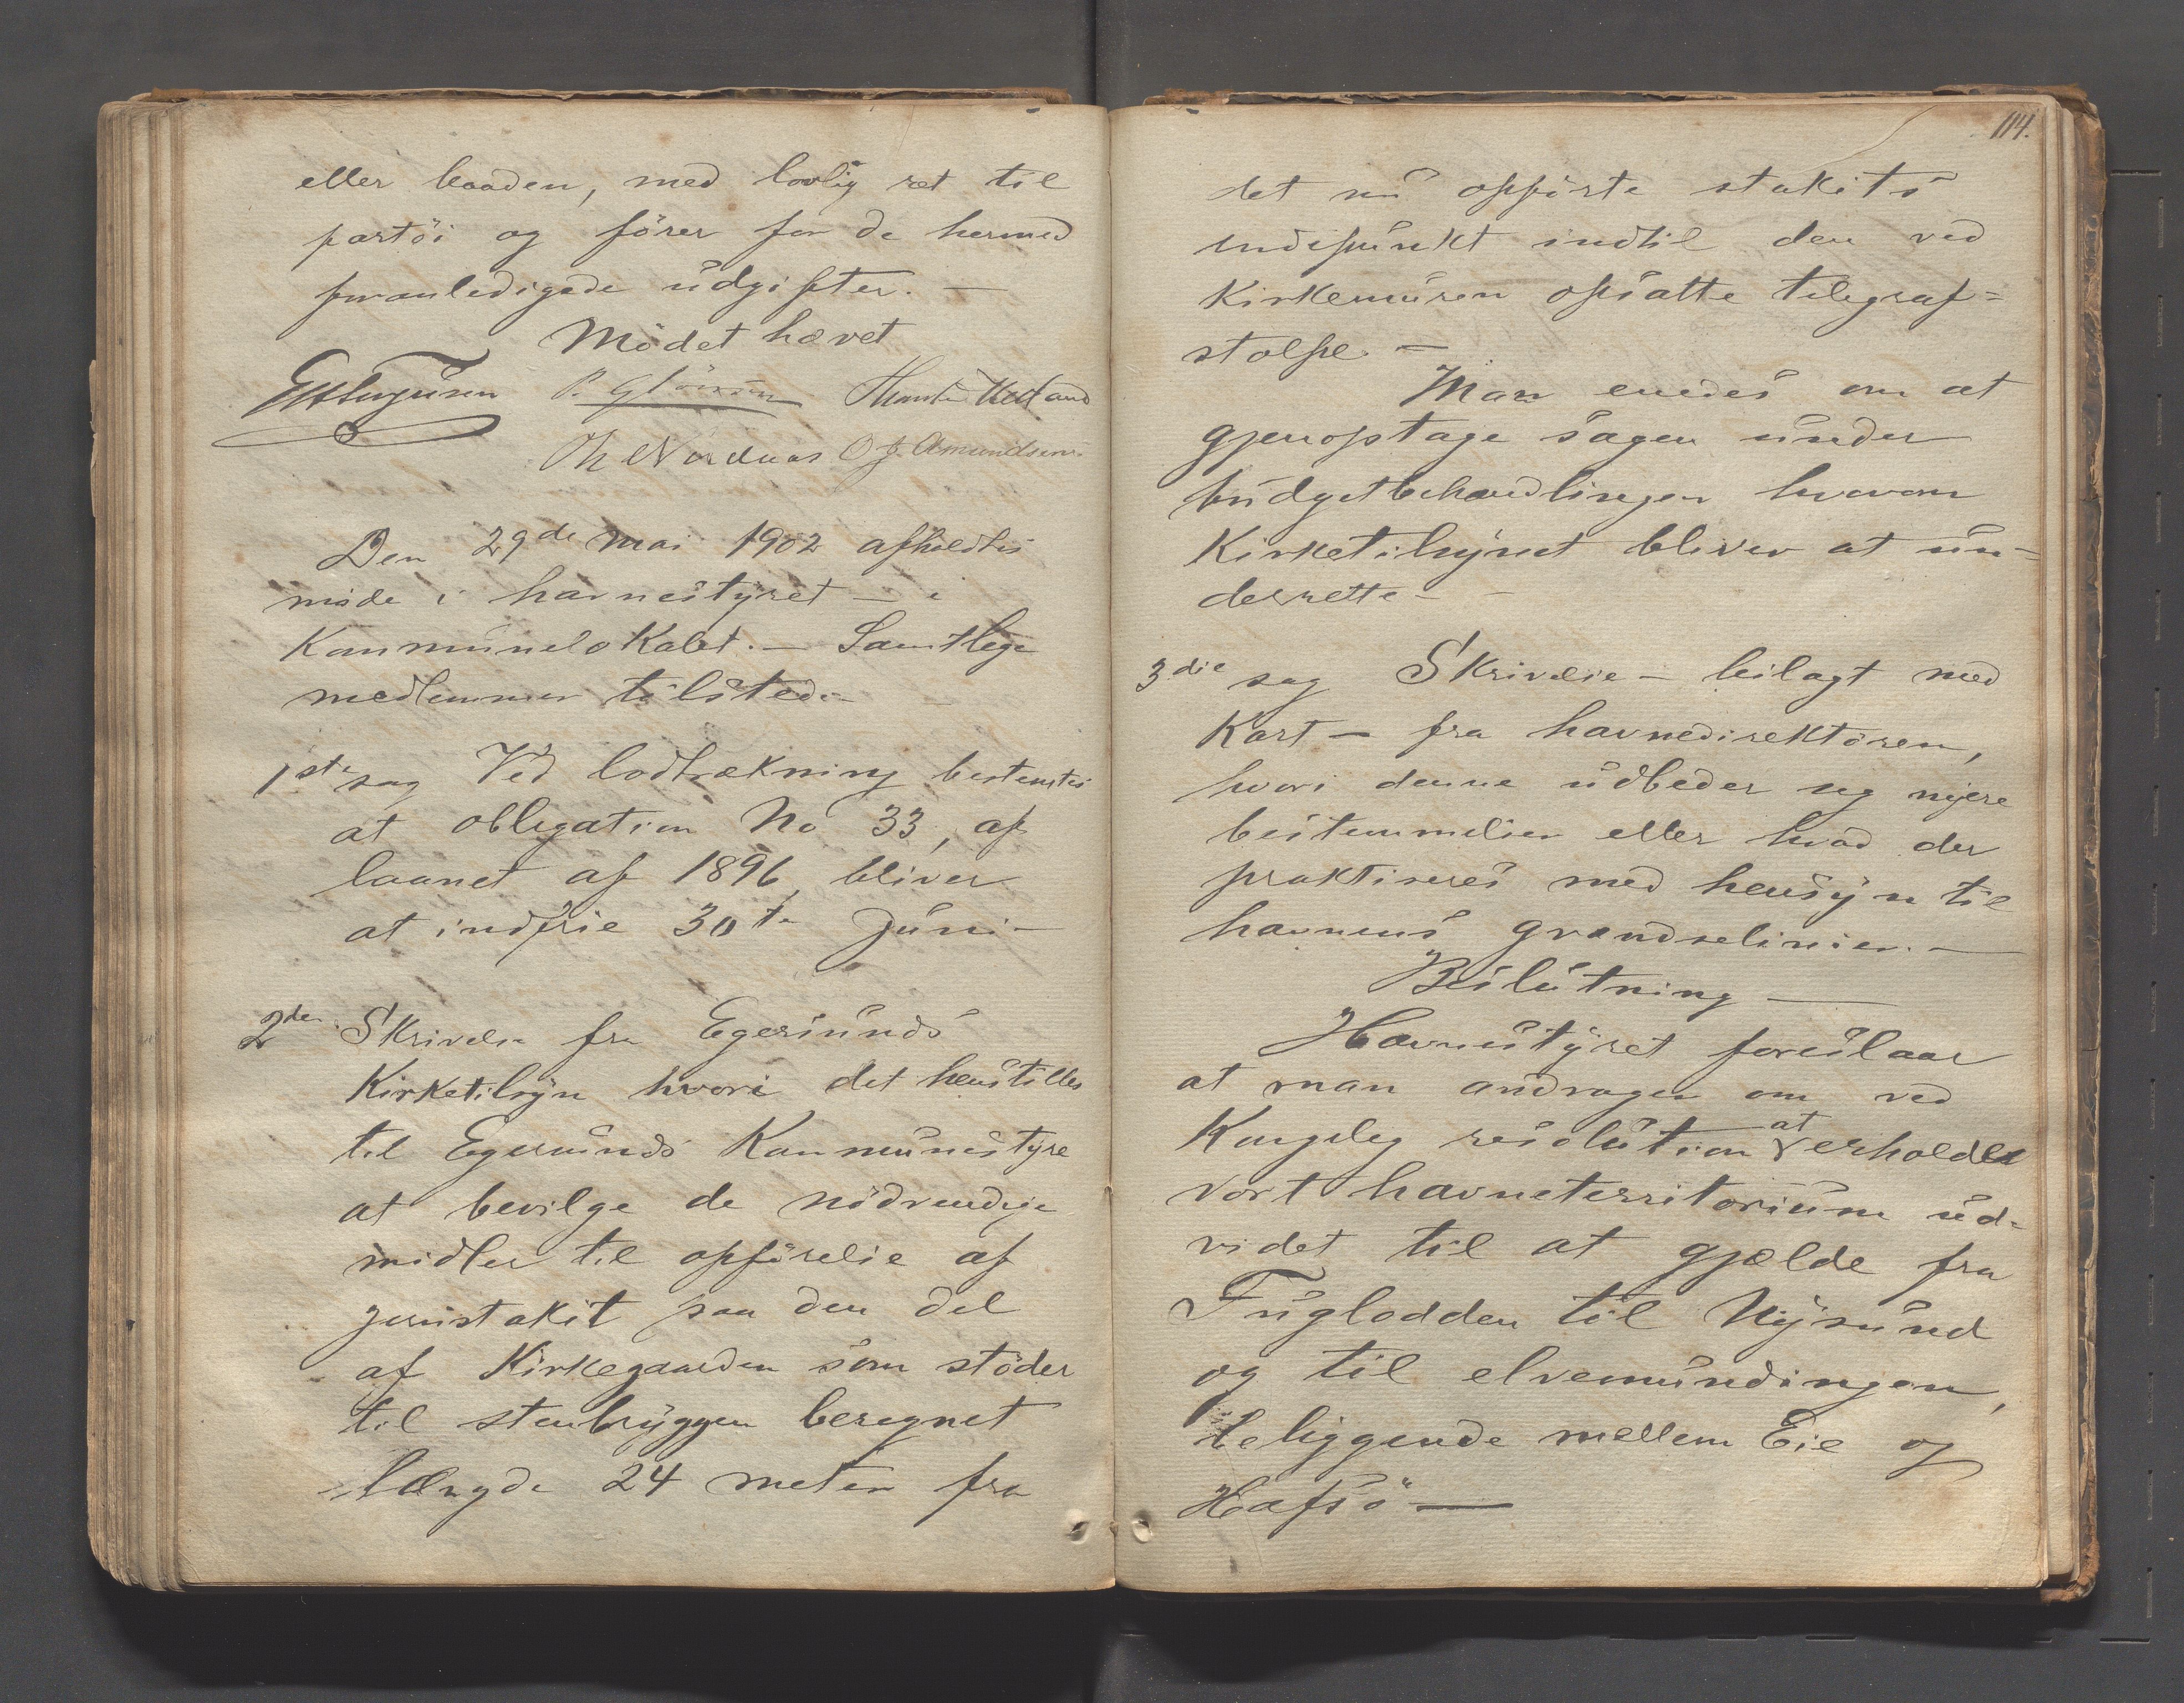 eller baaden, med lovlig ret til
fartöi og förer for de hermed
foranledigede udgifter. —
Mödet hævet
Th Nordaas O J. Amundsen
Den 29de Mai 1902 afholdtes
möde i havnestyret — i
Kommunelokalet. — Samtlige
medlemmer tilstede —
1ste sag Ved lodtrækning bestemtes
at obligation No 33, af
laanet af 1896, bliver
at indfrie 30te Juni —
2den Skrivelse fra Egersunds
Kirketilsyn hvori det henstilles
til Egersunds Kommunestyre
at bevilge de nödvendige
midler til opförelse af
jernstakit paa den del
af Kirkegaarden som stöder
til stenbryggen beregnet
længde 24 meter fra
114.
det nu opförte stakits
endepunkt indtil den ved
Kirkemuren opsatte telegraf=
stolpe. —
Man enedes om at
gjenoptage sagen under
budgetbehandlingen hvorom
Kirketilsynet bliver at un=
derrette —
3die sag Skrivelse — bilagt med
Kart — fra havnedirektören,
hvori denne udbeder sig nyere
bestemmelser eller hvad der
praktiseres med hensyn til
havnens grændselinier. —
Beslutning —
Havnestyret foreslaar
at man andrager om ved
Kongelig resolution at erholde
vort havneterritorium ud=
videt til at gjælde fra
Fuglodden til Nysund
og til elvemundingen,
beliggende mellem Eie og
Hafsö —